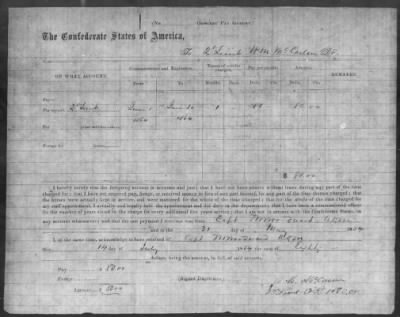 (No. OFFICERS' PAY ACCOUNT.)
The Confederate States of America,
To 2d Lieut Wm McCarlen Dr.
ON WHAT ACCOUNT.
Commencement and Expiration.
Time of service charged.
Pay per month.
Amount.
REMARKS.
From To Months. Days.
Pay—
For myself, 2d Lieut June 1 June 30 1 80 80 00
1864 1864
For
Forage—
$ 80.00
I hereby certify that the foregoing account is accurate and just; that I have not been absent without leave during any part of the time
charged for; that I have not received pay, forage, or received money in lieu of any part thereof, for any part of the time therein charged; that
the horses were actually kept in service, and were mustered for the whole of the time charged; that for the whole of the time charged
for my staff appointment, I actually and legally held the appointment and did duty in the department; that I have been a commissioned officer
for the number of years stated in the charge for every additional five years' service; that I am not in arrears with the Confederate States, on
any account whatsoever; and that the last payment I received was from Capt
and to the 31 day of May 1864
I, at the same time, acknowledge to have received of Capt
this 14 day of July 1864 the sum of Eighty
dollars, being the amount, in full, of said account.
Pay $ 80.00
Forage
Amount $ 80.00
(Signed Duplicates.)